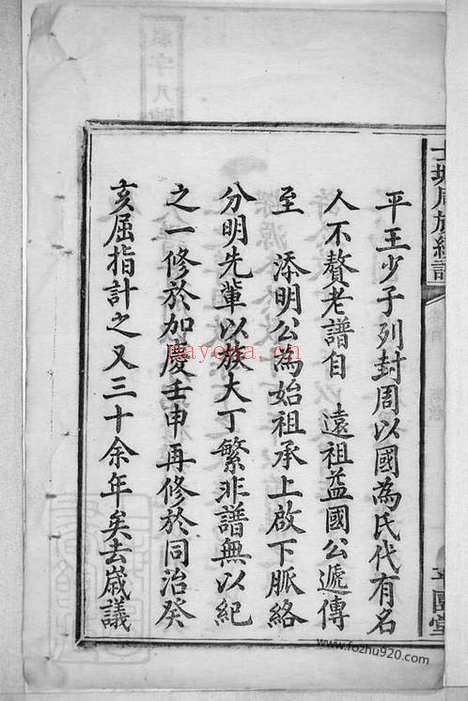 平王少子列封周以國為氏代有名
人不贅老譜自　遠祖益國公遞傳
至　添明公為始祖承上啟下脈絡
分明先輩以族大丁繁非譜無以紀
之一修於加慶壬申再修於同治癸
亥屈指計之又三十余年矣去歲議
nayona.cn
www.fozhu920.com